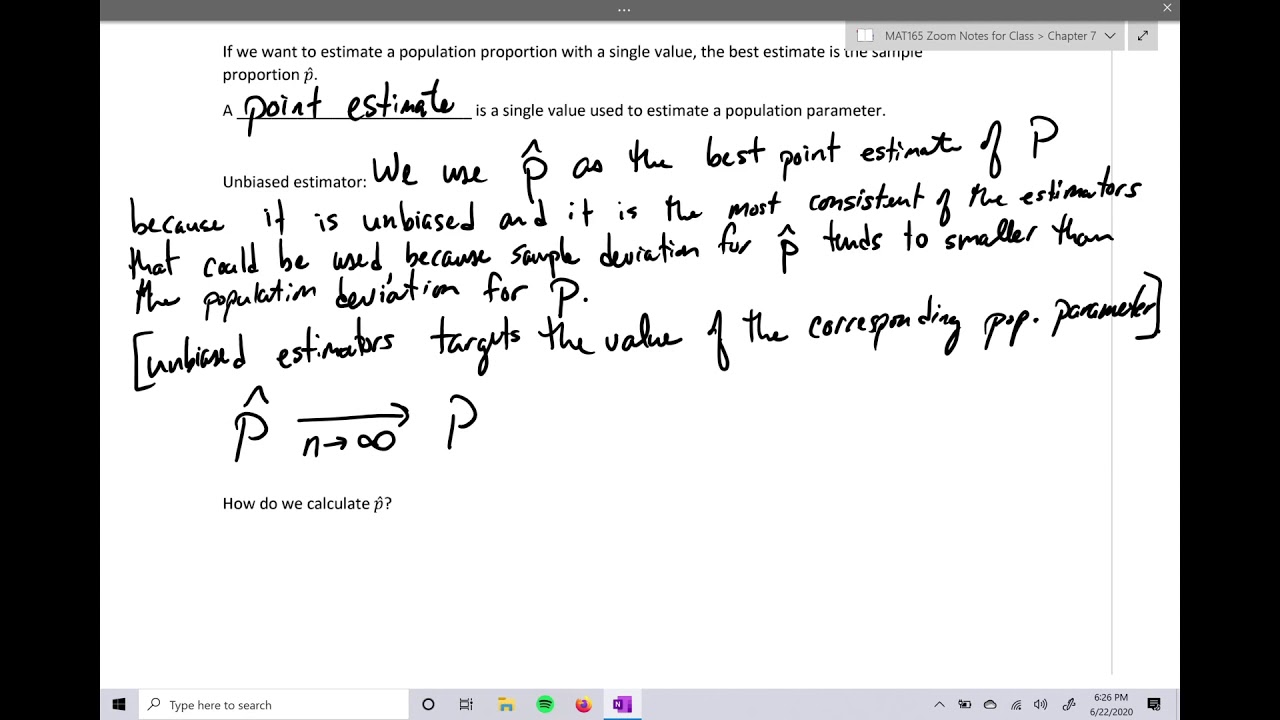 ...
MAT165 Zoom Notes for Class > Chapter 7
If we want to estimate a population proportion with a single value, the best estimate is the sample
proportion p̂.
A point estimate is a single value used to estimate a population parameter.
Unbiased estimator: We use p̂ as the best point estimate of P
because it is unbiased and it is the most consistent of the estimators
that could be used, because sample deviation for p̂ tends to smaller than
the population deviation for P.
[unbiased estimators targets the value of the corresponding pop. parameter]
p̂ → P
n→∞
How do we calculate p̂?
Type here to search
6:26 PM
6/22/2020